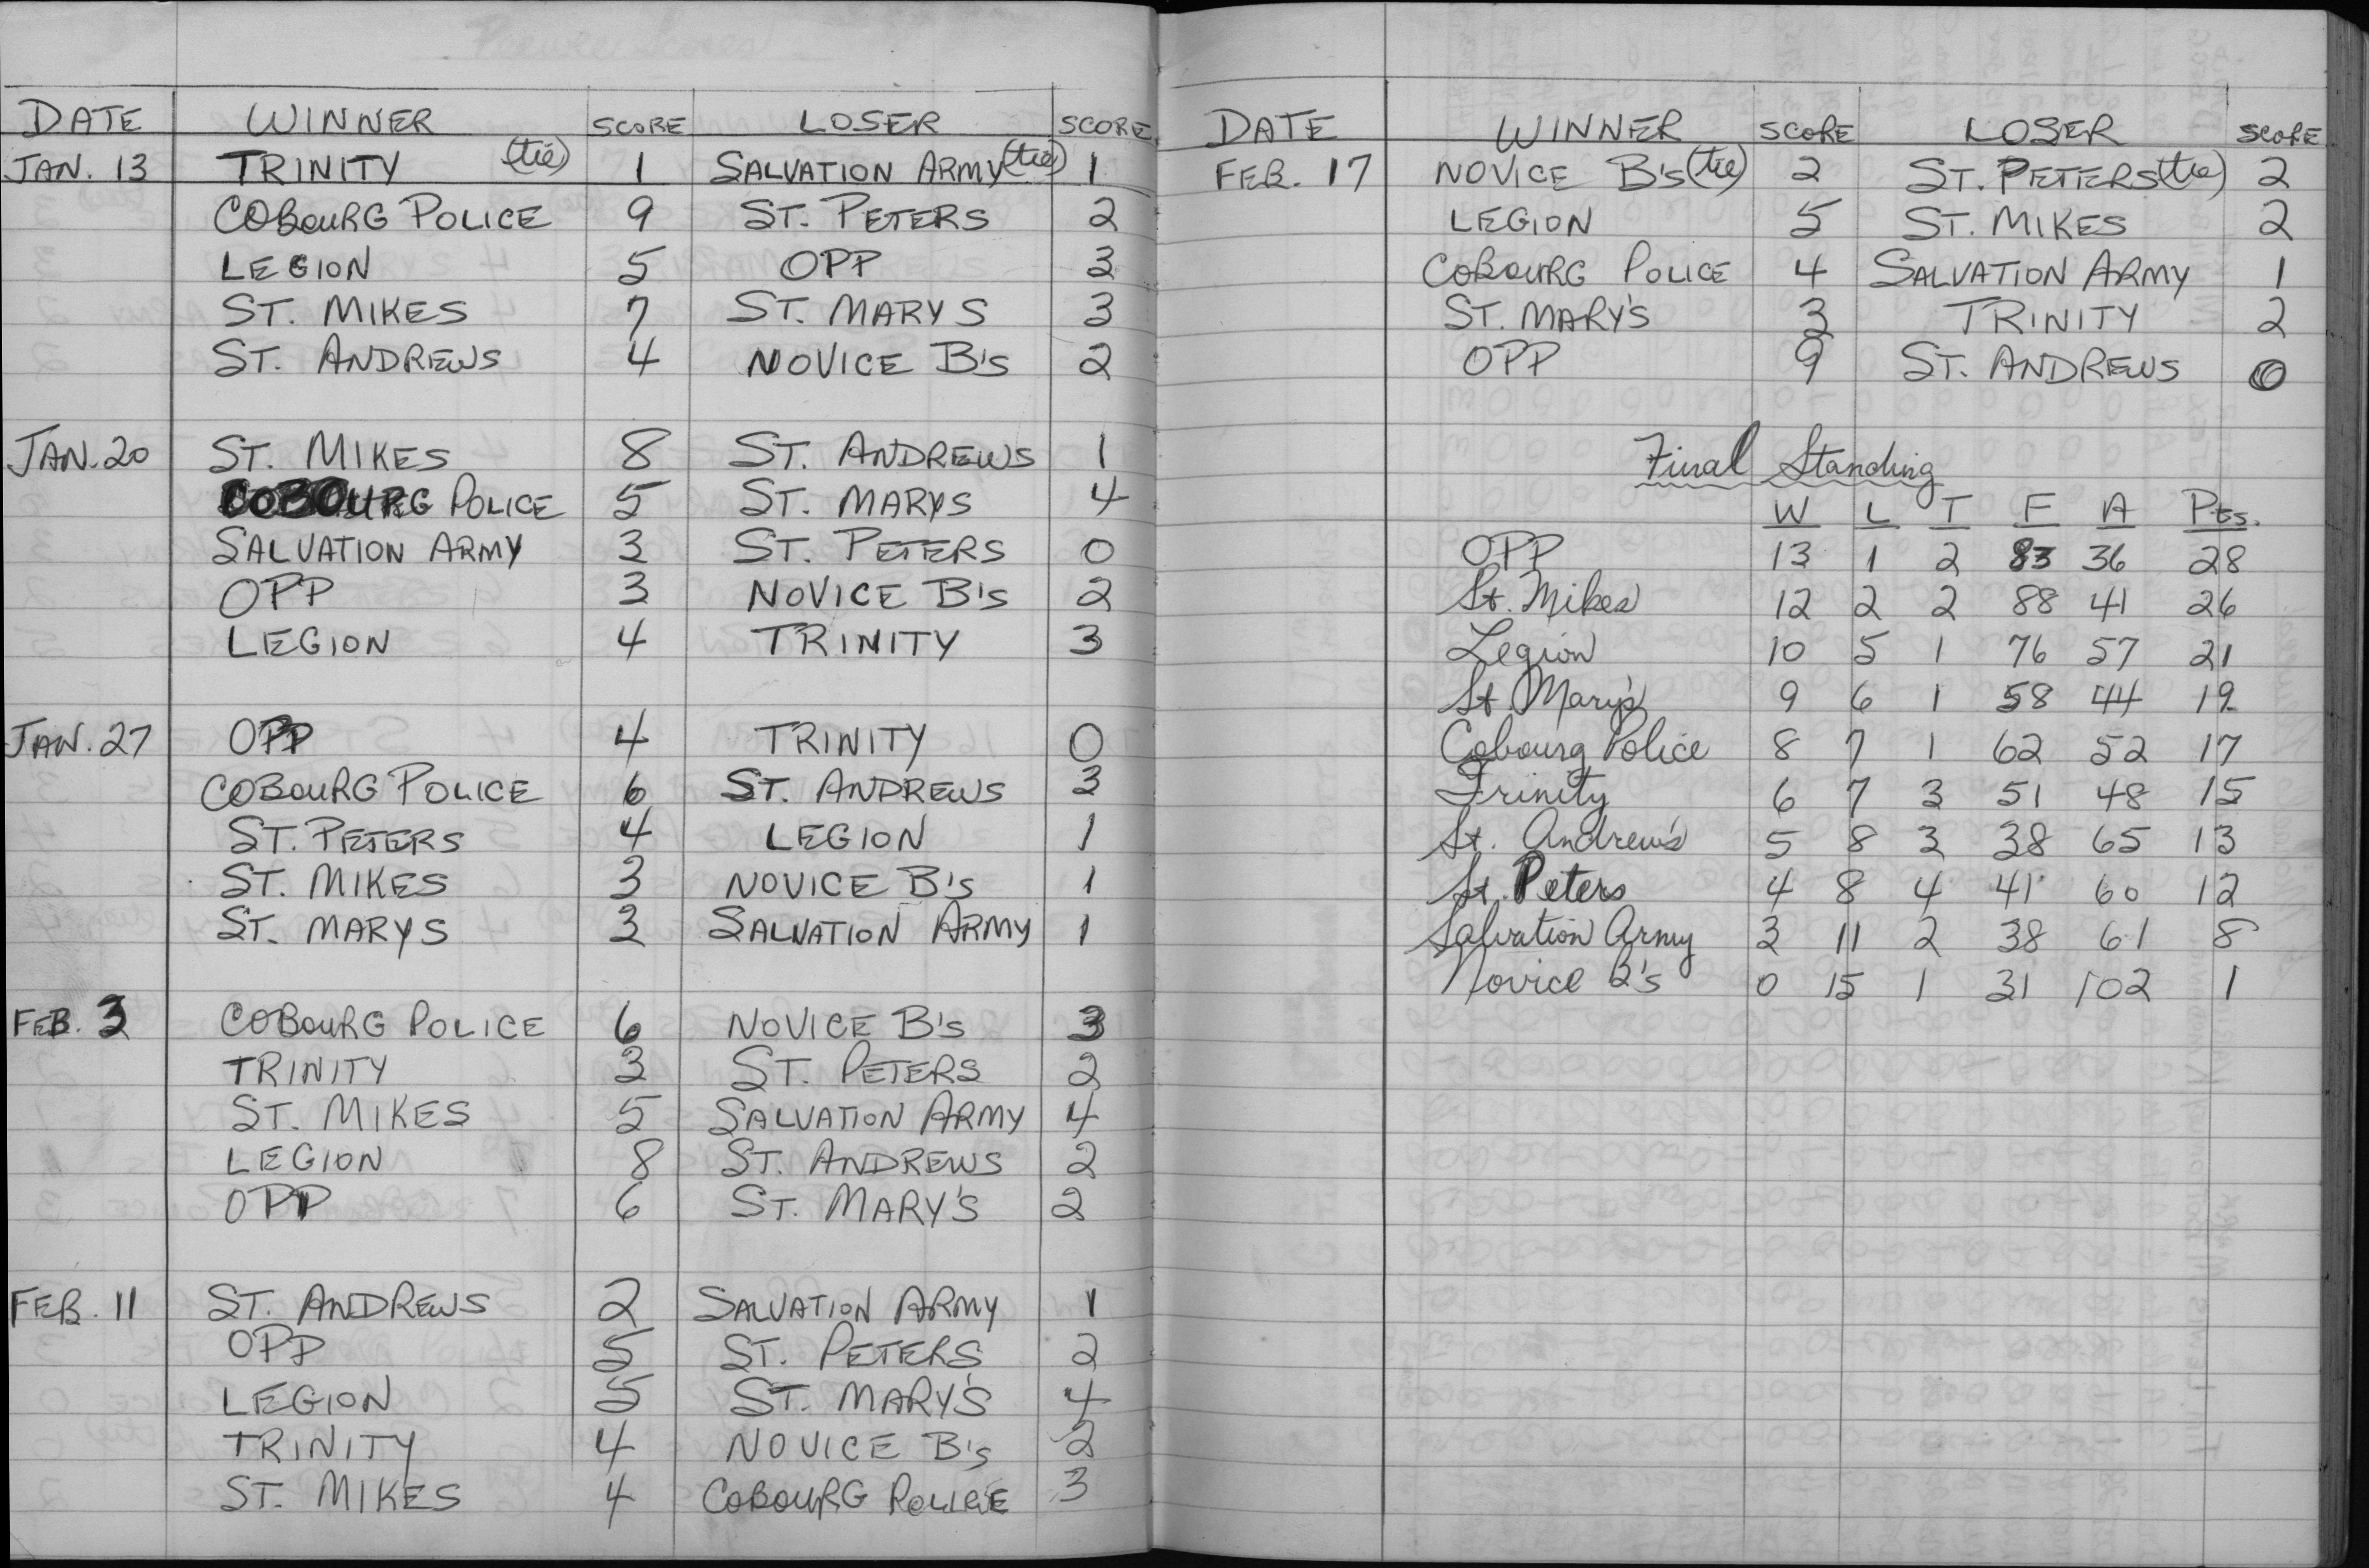 DATE WINNER SCORE LOSER SCORE
JAN. 13 TRINITY (tie) 1 SALVATION ARMY (tie) 1
COBOURG POLICE 9 ST. PETERS 2
LEGION 5 OPP 3
ST. MIKES 7 ST. MARYS 3
ST. ANDREWS 4 NOVICE B's 2
JAN. 20 ST. MIKES 8 ST. ANDREWS 1
COBOURG POLICE 5 ST. MARYS 4
SALVATION ARMY 3 ST. PETERS 0
OPP 3 NOVICE B's 2
LEGION 4 TRINITY 3
JAN. 27 OPP 4 TRINITY 0
COBOURG POLICE 6 ST. ANDREWS 3
ST. PETERS 4 LEGION 1
ST. MIKES 3 NOVICE B's 1
ST. MARYS 3 SALVATION ARMY 1
FEB. 3 COBOURG POLICE 6 NOVICE B's 3
TRINITY 3 ST. PETERS 2
ST. MIKES 5 SALVATION ARMY 4
LEGION 8 ST. ANDREWS 2
OPP 6 ST. MARY'S 2
FEB. 11 ST. ANDREWS 2 SALVATION ARMY 1
OPP 5 ST. PETERS 2
LEGION 5 ST. MARY'S 4
TRINITY 4 NOVICE B's 2
ST. MIKES 4 COBOURG POLICE 3
DATE WINNER SCORE LOSER SCORE
FEB. 17 NOVICE B's (tie) 2 ST. PETERS (tie) 2
LEGION 5 ST. MIKES 2
COBOURG POLICE 4 SALVATION ARMY 1
ST. MARY'S 3 TRINITY 2
OPP 9 ST. ANDREWS 0
Final Standing
W L T F A Pts.
OPP 13 1 2 83 36 28
St. Mikes 12 2 2 88 41 26
Legion 10 5 1 76 57 21
St Mary's 9 6 1 58 44 19
Cobourg Police 8 7 1 62 52 17
Trinity 6 7 3 51 48 15
St. Andrew's 5 8 3 38 65 13
St. Peters 4 8 4 41 60 12
Salvation Army 3 11 2 38 61 8
Novice B's 0 15 1 31 102 1